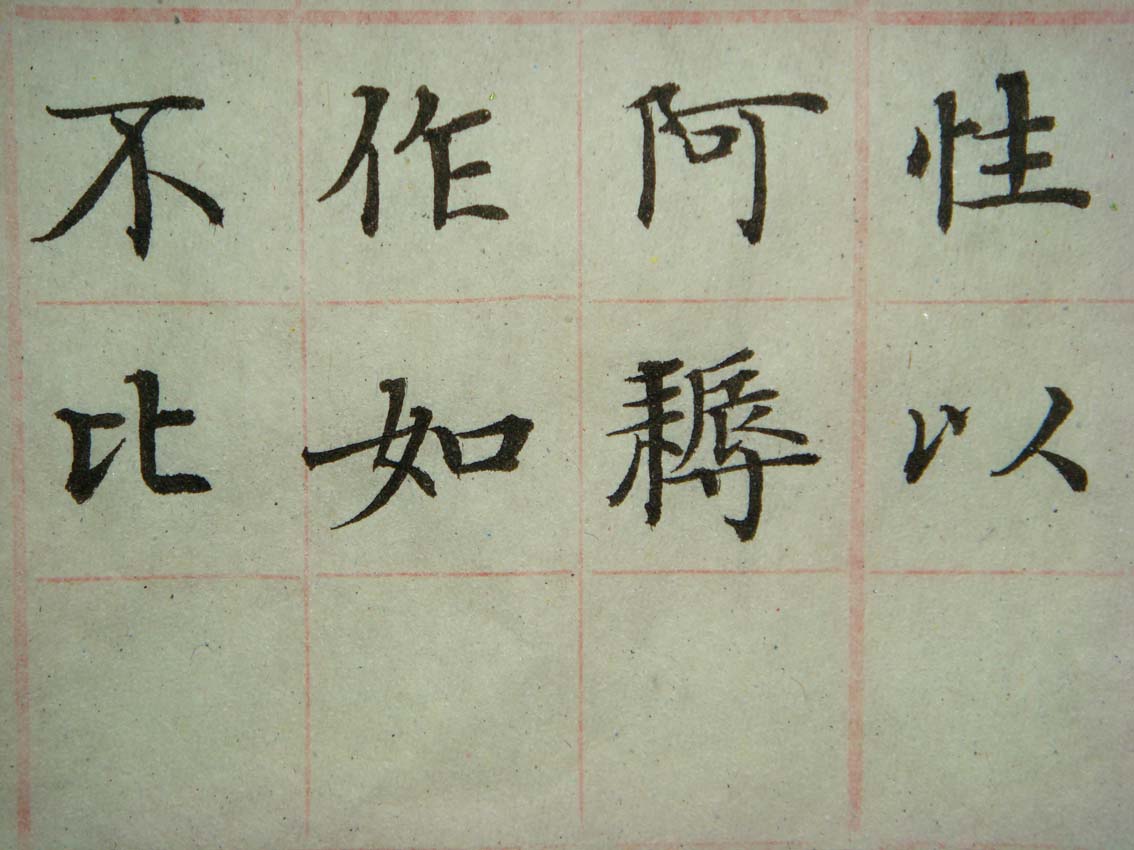 性以
阿耨
作如
不比